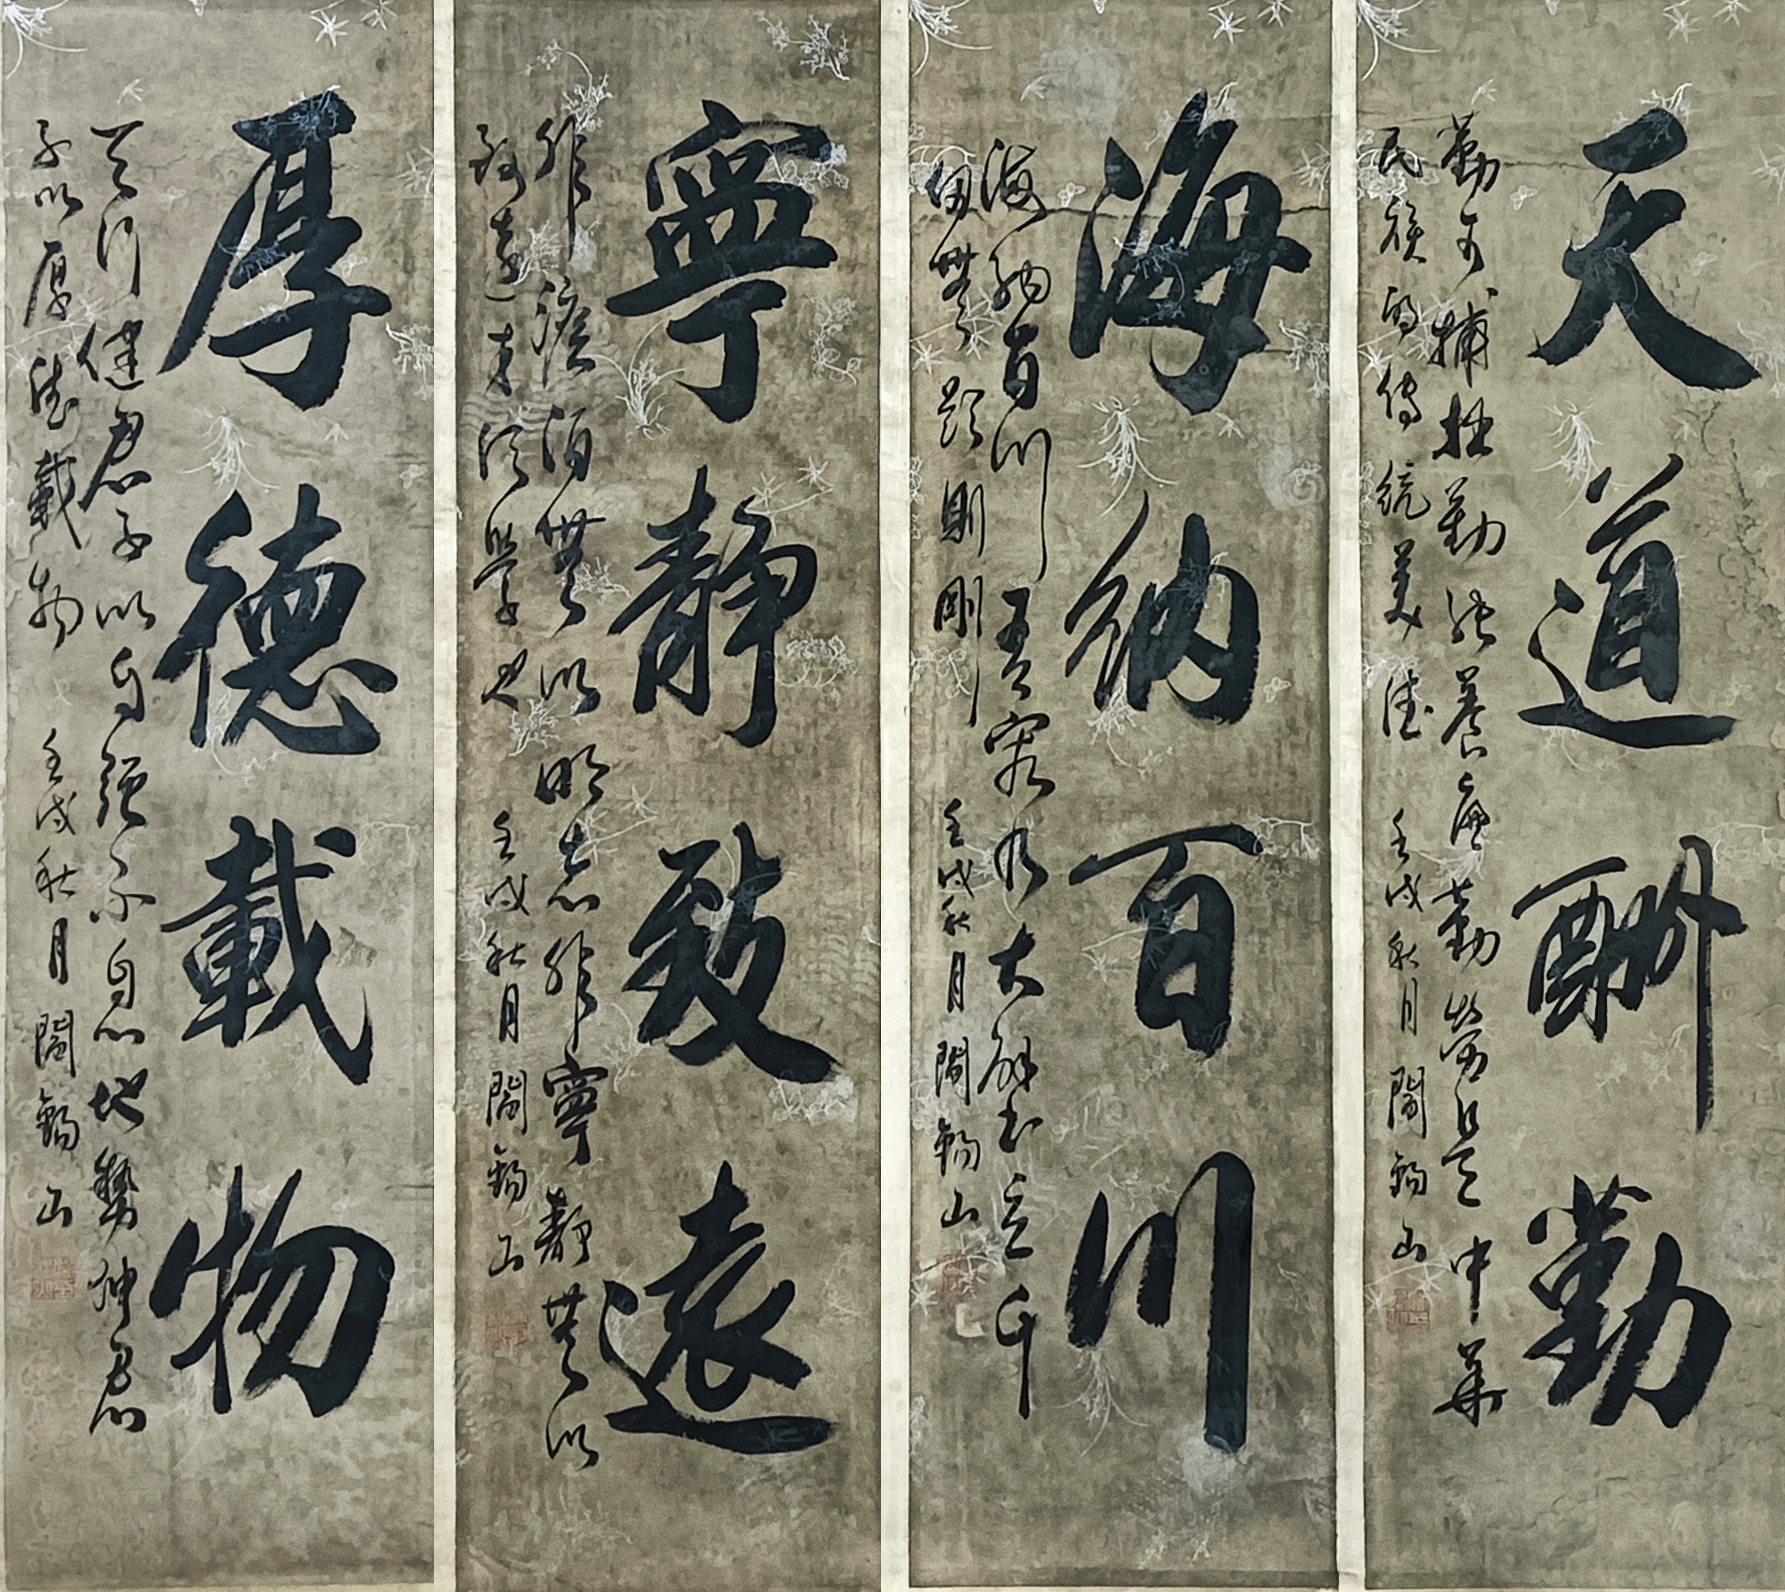 天道酬勤
勤可補拙勤能養廉勤勞是中華
民族的傳統美德 壬戌秋月閻錫山
海納百川
海納百川有容乃大壁立千
仞無欲則剛 壬戌秋月閻錫山
寧靜致遠
非澹泊無以明志非寧靜無以
致遠 壬戌秋月閻錫山
厚德載物
天行健君子以自強不息地勢坤君
子以厚德載物 壬戌秋月閻錫山